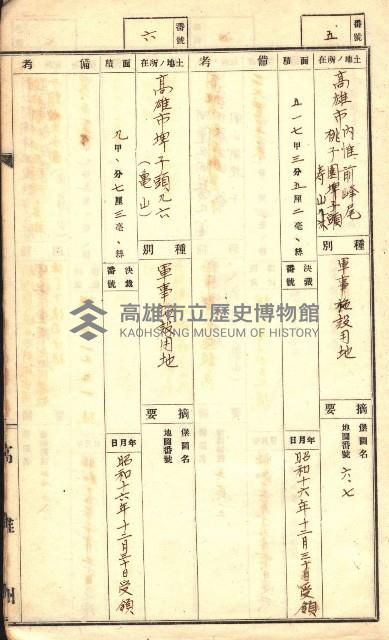 番號
五
土地ノ所在
高雄市內惟前峰尾
桃子園埤子頭
壽山
種別
軍事施設用地
摘要
堡圖名
地圖番號
六、七
面積
五一七甲三分五厘二毫、絲
決裁番號
年月日
昭和十六年十二月三十日受領
備考
番號
六
土地ノ所在
高雄市埤子頭九六
(亀山)
種別
軍事施設用地
摘要
堡圖名
地圖番號
面積
九甲、分七厘三毫、絲
決裁番號
年月日
昭和十六年十二月三十日受領
備考
高雄州
高雄市立歷史博物館
KAOHSIUNG MUSEUM OF HISTORY